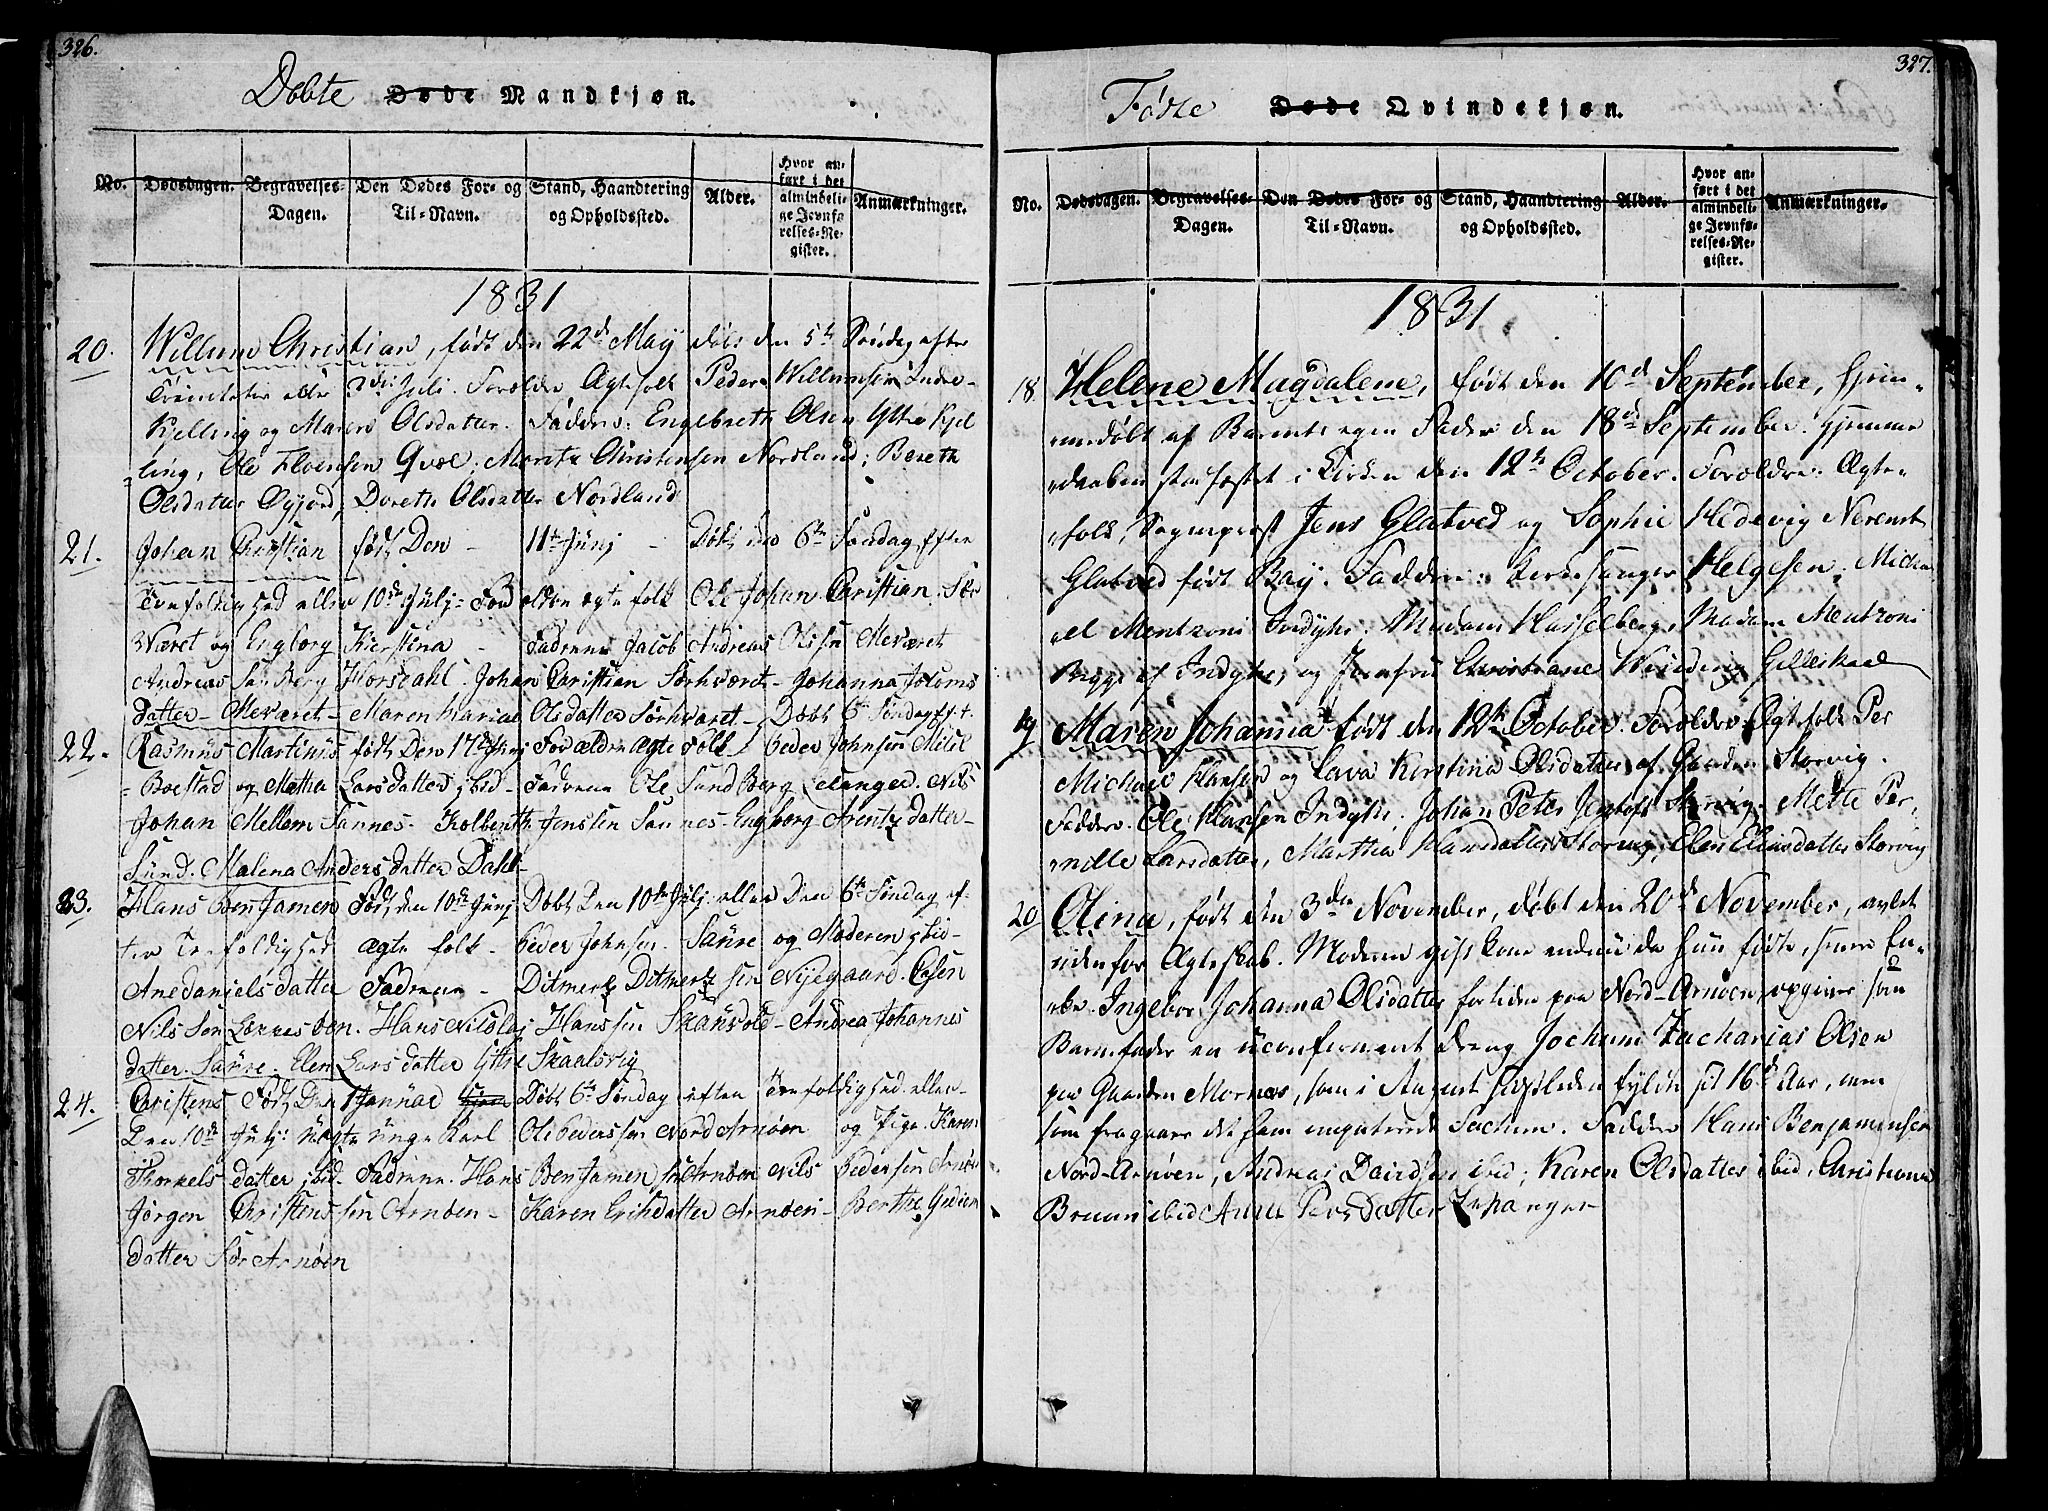 326.
Døbte Døde Mandkjøn.
No. Dødsdagen. Begravelses-Dagen. Den Dødes For- og Til-Navn. Stand, Haandtering og Opholdssted. Alder. Hvor anført i det almindelige Jevnførelses-Register. Anmærkninger.
1831
20. Willum Christian, født den 22d May døbt den 5te Søndag efter
Trinitatis eller 3die Juli. Forældre Ægtefolk Peder Willumsen Indre-
Kjelling og Maren Olsdatter. Faddere: Engebreth Olsen Yttre Kjel
ling, Ole Qvæl, Morits Christensen Nordland; Bereth
Olsdatter Øyjord, Doreth Olsdatter Nordland
21. Johan Christian født Den - 11te Junj - Døbt den 6te Søndag efter
Trefoldighed eller 10de Julj - Forældre ægte folk Ole Johan Christian Sør
Været og Engborg Kierstina - Fadrene Jacob Andreas Olssen Meværet
Andreas Sandberg Horsdahl. Johan Christian Sørhværet - Johanna
datter - Meværet - Maren Maria Olsdatter Sørhværet - Døbt 6te Søndag ef. t.
22. Rasmus Martinus født Den 17de Junj Forældre ægte folk Peder Johnsen
Boestad og Martha Larsdatter jbid - Fadrene Ole Sund Berg Nils
Johan Mellem Sannes - Kolbenth Jenssen Sannes - Engborg Arentz datter -
Sund. Malena Anders datter Dahl
23. Hans BenJamen Født den 10de Junj Døbt Den 10de Julj eller Den 6te Søndag ef-
ter Trefoldighed ægte folk - Peder Johnsen Saure og Moderen jbid -
Anedaniels datter Fadrene - Ditmertz Ditmertz sen Nyegaard - Edsen
Nils Sen. Hans Nilolaj Hanssen Skansvold - Andrea Johannes
datter Saure - Elen Lars datter Yttre Skaalsvig
24. Christens Født Den 1 Januar Døbt 6te Søndag eften Trefoldighed eller
Den 10de Julj: Uægte Unge Karl Ole Pederssen Nord Arnøen og Pige Karen
Thorkels datter jbid - Fadrene - Hans BenJamen Arnøen Nils Pedersen Arnøen
Jørgen Christens sen Arnøen - Karen Erihsdatter Arnøen - Berthe
datter Sør Arnøen
327.
Fødte Døde Qvindekjøn.
No. Dødsdagen. Begravelses-Dagen. Den Dødes For- og Til-Navn. Stand, Haandtering og Opholdssted. Alder. Hvor anført i det almindelige Jevnførelses-Register. Anmærkninger.
1831
18 Helene Magdalene, født den 10d September, hjem-
medøbt af Barnets egen Fader den 18d September. Hjemme
daaben stadfæstet i Kirken den 12te October. Forældre: Ægte-
folk, Sogneprest Jens Glatved og Sophie Hedevig Nerenst
Glatved født Baÿ. Faddere: Kirkesanger Helgesen, Mich
el Mentzoni Indyhr, Madam Hasselberg, Madam Mentzoni
begge af Indyhr, og Jomfru Christiane Gilleskaal
19 Maren Johanna født den 12te October. Forældre Ægtefolk Per
Michael Hansen og Lava Kirstina Olsdatter af Gaarden Storvig.
Faddere. Ole Hansen Indyhr, Johan Peter Jentoft Storvig. Mette Per
nille Larsdatter, Martha Hansdatter Storvig, Elen Storvig
20 Olina, født den 3die November, døbt den 20d November, avlet
udenfor Ægteskab. Moderen gift kone endnu da hun fødte, senere En-
ke Ingebor Johanna Olsdatter for tiden paa Nord-Arnøen, opgiver som
Barnefader en uconfirmeret Dreng Jochum Zacharias Olsen
paa Gaarden Mornes, som i August sidstleden fyldte sit 16d Aar, men
som fragaaer det ham imputerede Factum. Faddere Hans Benjaminsen
Nord-Arnøen, Andreas Davidsen ibid; Karen Olsdatter ibid, Christianna
Bruun ibid Anne Persdatter